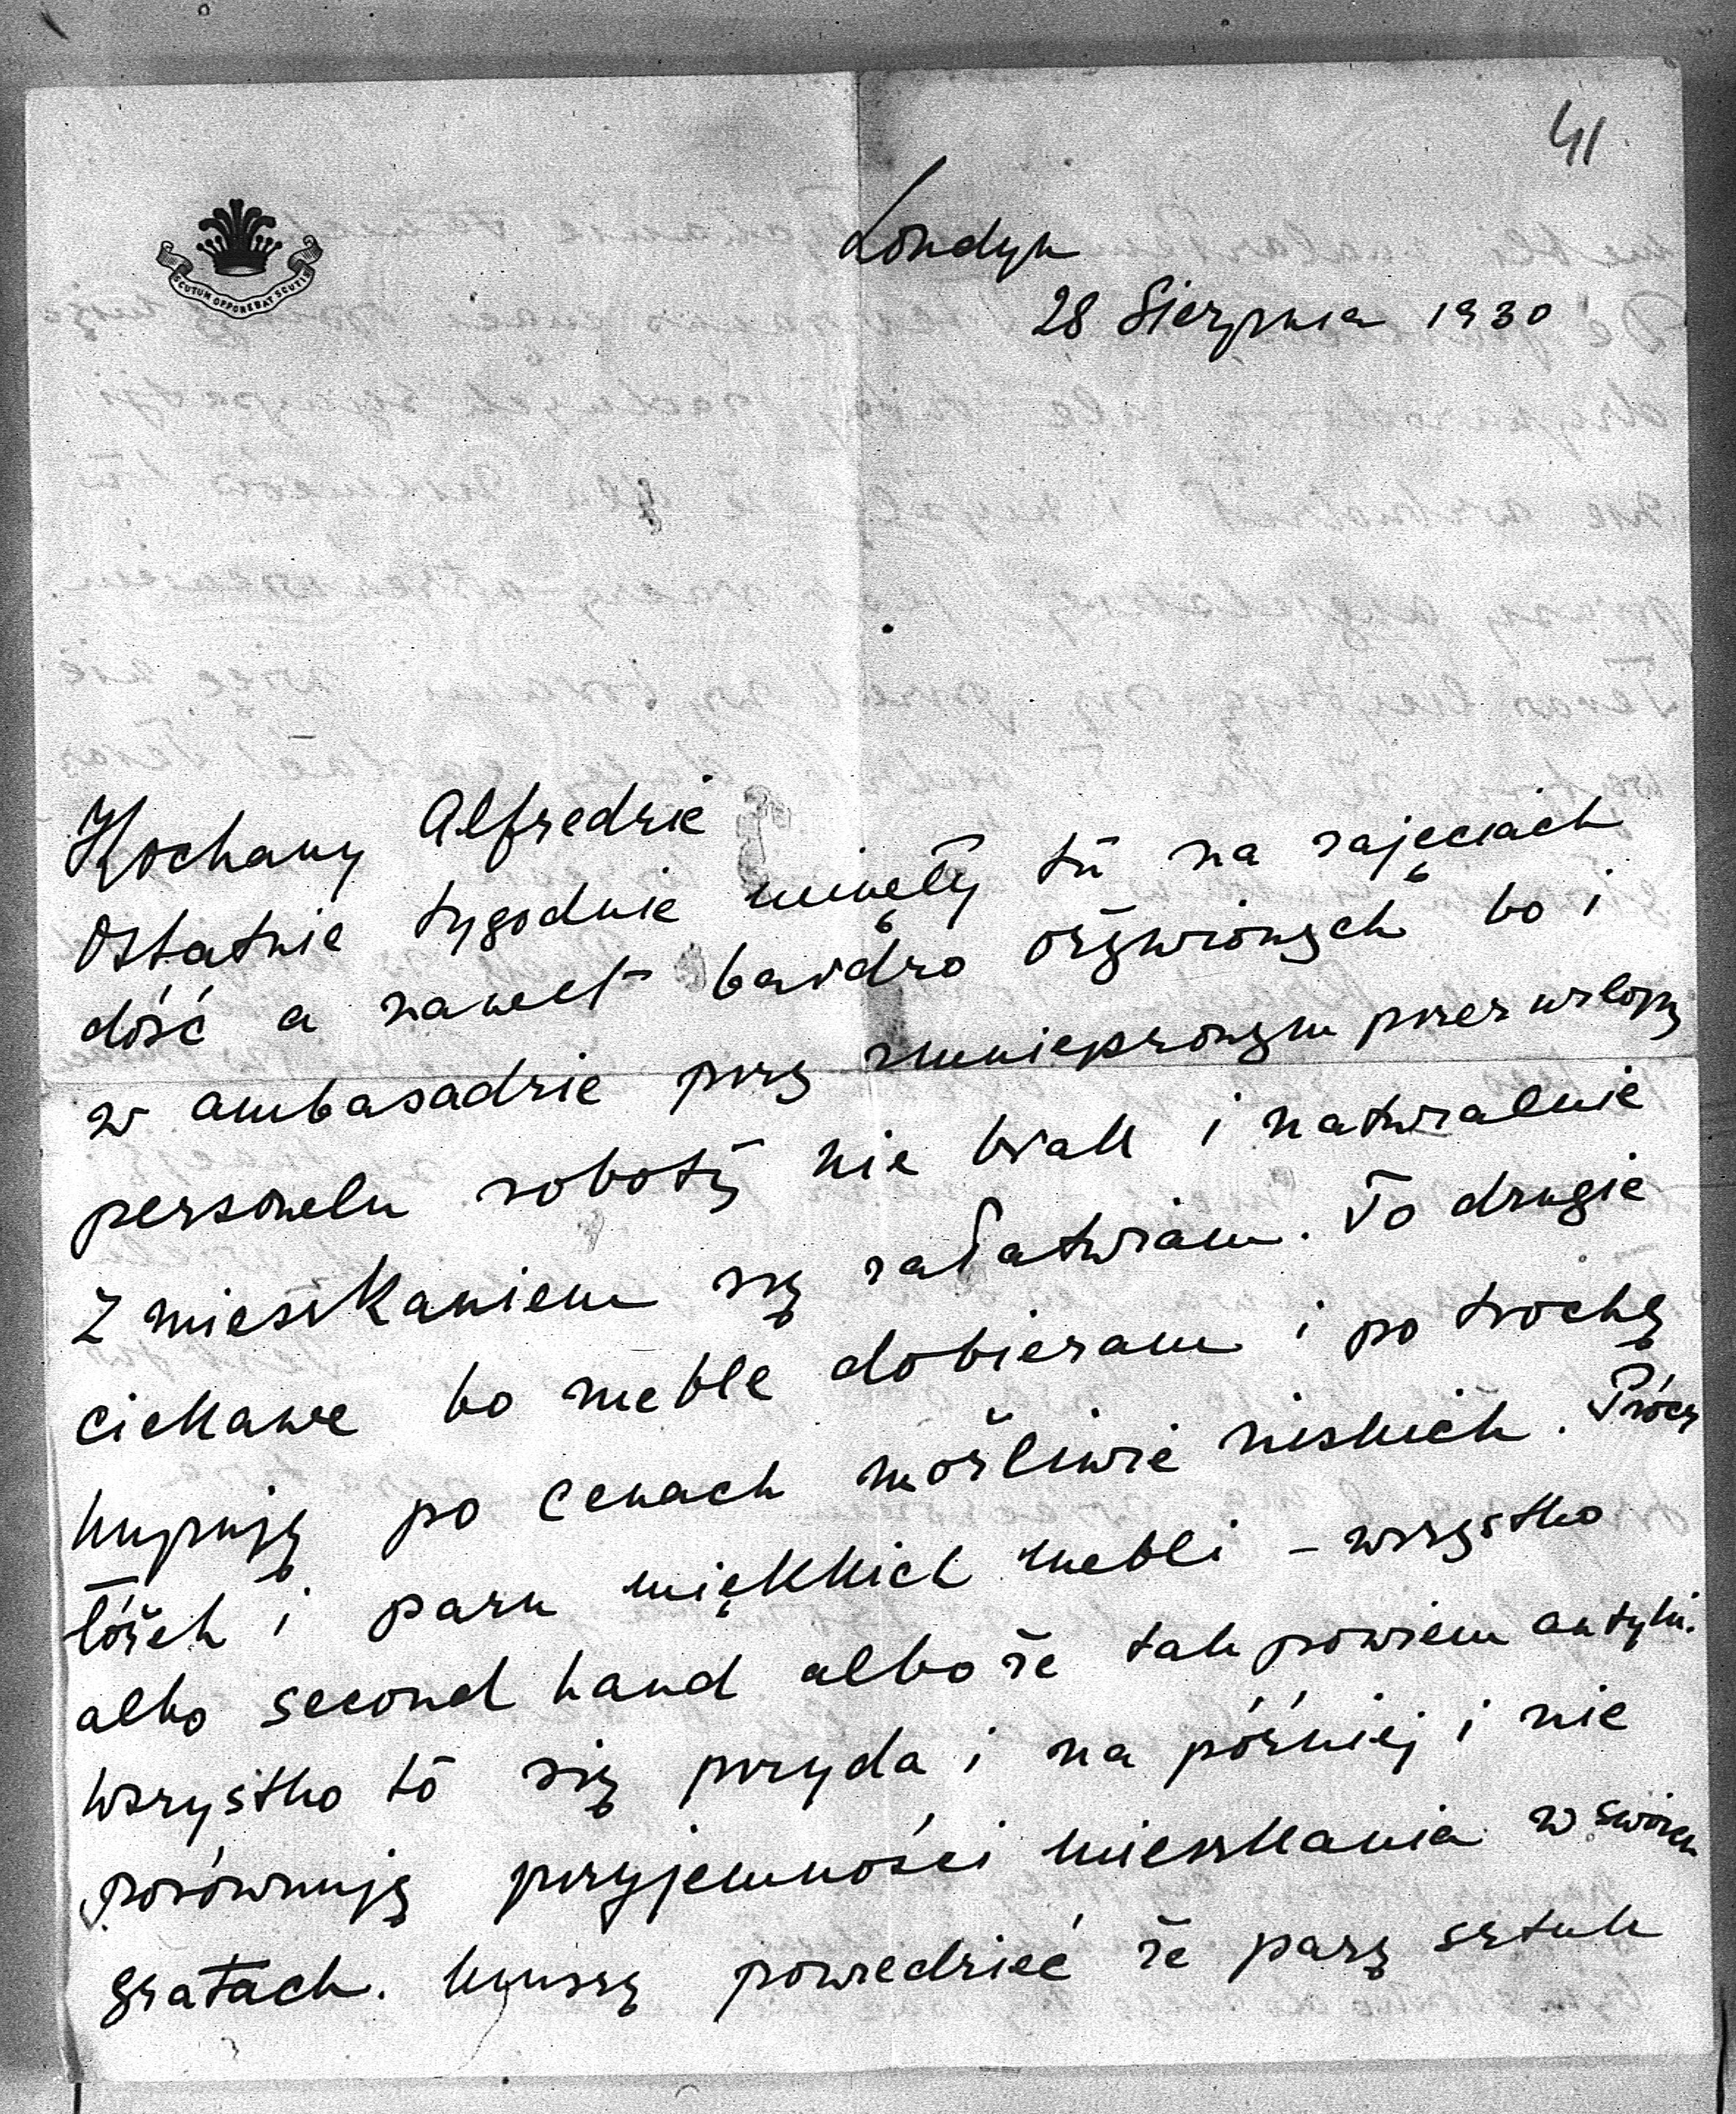 41
SCUTUM OPPONEBAT SCUTIS
Londyn
28 Sierpnia 1930
Kochany Alfredzie
Ostatnie tygodnie minęły tu na zajęciach
dość a nawet bardzo ożywionych bo i
w ambasadzie przy zmniejszonym przez urlopy
personelu roboty nie brak i naturalnie
z mieszkaniem się załatwiam. To drugie
ciekawe bo meble dobieram i po trochę
kupuję po cenach możliwie niskich. Prócz
łóżek i paru miękkich mebli – wszystko
albo second hand albo że tak powiem antyki.
Wszystko to się przyda i na później i nie
porównuję przyjemności mieszkania w swoich
gratach. Muszę powiedzieć że parę sztuk